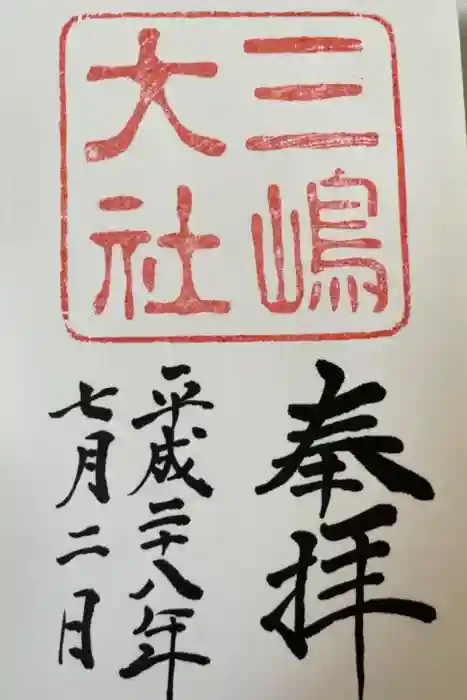 三嶋
大社
奉拝
平成二十八年
七月二日